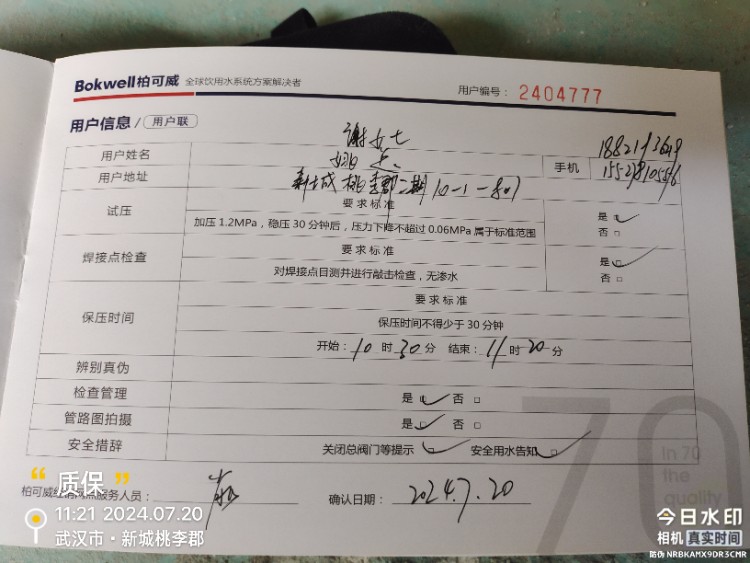 Bokwell柏可威 全球饮用水系统方案解决者
用户编号: 2404777
用户信息 / 用户联
谢女士
用户姓名 姚
手机
用户地址 新城桃李郡二期10-1-801
试压 要求标准 是
加压1.2MPa，稳压30分钟后，压力下降不超过0.06MPa属于标准范围 否
焊接点检查 要求标准 是
对焊接点目测并进行敲击检查，无渗水 否
保压时间 要求标准
保压时间不得少于30分钟
开始: 10时30分 结束: 11时20分
辨别真伪
检查管理 是 否
管路图拍摄 是 否
安全措辞 关闭总阀门等提示 安全用水告知
70
In 70
the
quality
“质保”
服务人员:
确认日期: 2024.7.20
11:21 2024.07.20
武汉市·新城桃李郡
今日水印
相机 真实时间
防伪 NRBKAMX9DR3CMR